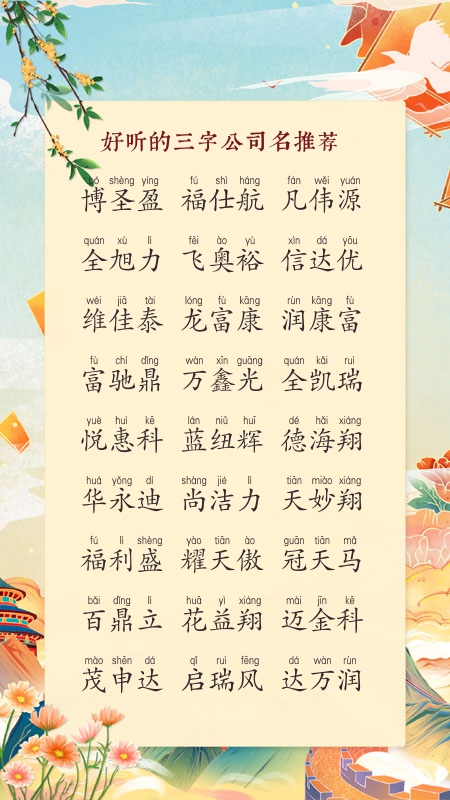 好听的三字公司名推荐
bó shèng yíng fú shì háng fán wěi yuán
博圣盈 福仕航 凡伟源
quán xù lì fēi ào yù xìn dá yōu
全旭力 飞奥裕 信达优
wéi jiā tài lóng fù kāng rùn kāng fù
维佳泰 龙富康 润康富
fù chí dǐng wàn xīn guāng quán kǎi ruì
富驰鼎 万鑫光 全凯瑞
yuè huì kē lán niǔ huī dé hǎi xiáng
悦惠科 蓝纽辉 德海翔
huá yǒng dí shàng jié lì tiān miào xiáng
华永迪 尚洁力 天妙翔
fú lì shèng yào tiān ào guān tiān mǎ
福利盛 耀天傲 冠天马
bǎi dǐng lì huā yì xiáng mài jīn kē
百鼎立 花益翔 迈金科
mào shēn dá qǐ ruì fēng dá wàn rùn
茂申达 启瑞风 达万润